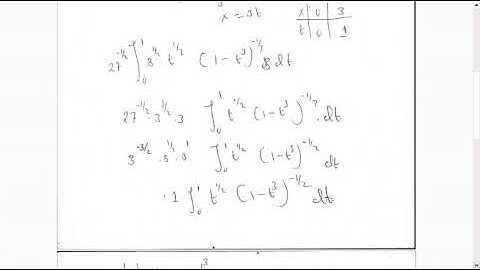 x = 3t
x | 0 | 3
t | 0 | 1
27^{-1/2} ∫_0^1 3^{1/2} · t^{1/2} (1 - t^3)^{-1/2} 3 dt
27^{-1/2} · 3^{1/2} · 3 ∫_0^1 t^{1/2} (1 - t^3)^{-1/2} · dt
3^{-3/2} · 3^{1/2} · 3^1 ∫_0^1 t^{1/2} (1 - t^3)^{-1/2} dt
· 1 ∫_0^1 t^{1/2} (1 - t^3)^{-1/2} dt